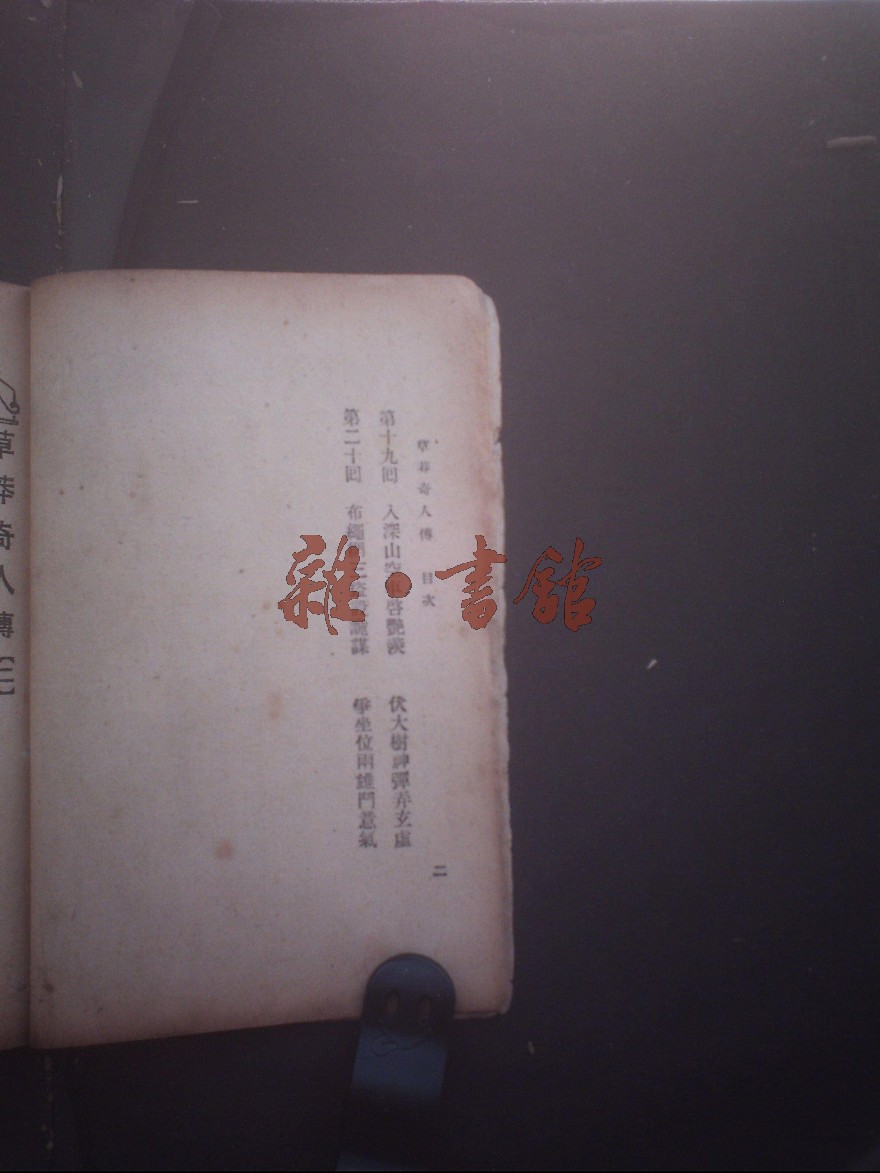 草莽奇人傳 目次
第十九回 入深山空 啓艷 伏大樹神彈弄玄虛
第二十回 布繩 謀 爭坐位兩雄鬥意氣
二
草莽奇人傳【二】
雜·書館